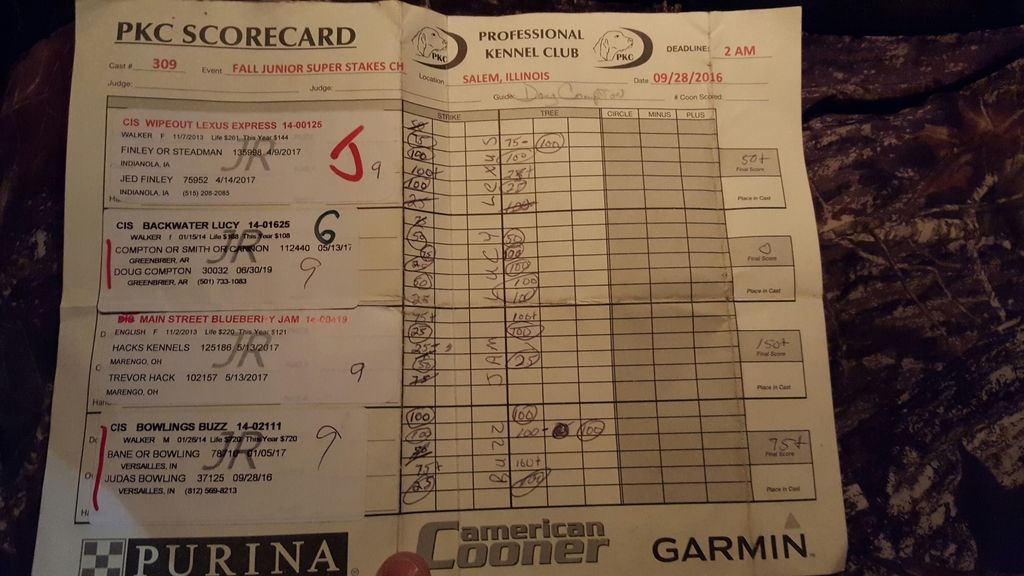 PKC SCORECARD
PROFESSIONAL
KENNEL CLUB
PKC
PKC
DEADLINE: 2 AM
Cast # 309 Event FALL JUNIOR SUPER STAKES CH
Location SALEM, ILLINOIS Date 09/28/2016
Judge: Judge: Guide: Doug Compton # Coon Scored:
STRIKE TREE CIRCLE MINUS PLUS
CIS WIPEOUT LEXUS EXPRESS 14-00125
WALKER F 11/7/2013 Life $261 This Year $144
FINLEY OR STEADMAN 135998 4/9/2017
INDIANOLA, IA
JED FINLEY 75952 4/14/2017
INDIANOLA, IA (515) 208-2085
JR
J
9
LEXUS
75-
100
100
100+
100
50+
Final Score
Place in Cast
CIS BACKWATER LUCY 14-01625
WALKER F 01/15/14 Life $108 This Year $108
COMPTON OR SMITH OR CANNON 112440 05/13/17
GREENBRIER, AR
DOUG COMPTON 30032 06/30/19
GREENBRIER, AR (501) 733-1083
JR
6
9
LUCY
100
100
0
Final Score
Place in Cast
MAIN STREET BLUEBERRY JAM
ENGLISH F 11/2/2013 Life $220 This Year $121
HACKS KENNELS 125186 5/13/2017
MARENGO, OH
TREVOR HACK 102157 5/13/2017
MARENGO, OH
JR
9
JAM
75+
100+
25
100
25
150+
Final Score
Place in Cast
CIS BOWLINGS BUZZ 14-02111
WALKER M 01/26/14 Life $720 This Year $720
BANE OR BOWLING 01/05/17
VERSAILLES, IN
JUDAS BOWLING 37125 09/28/16
VERSAILLES, IN (812) 569-8213
JR
9
BUZZ
100
100
100-
100
75+
100+
25
100
75+
Final Score
Place in Cast
PURINA
american
Cooner
GARMIN